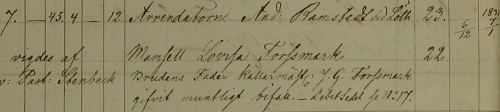 7. - 45. 4 - 12. Arrendatorn And. Ramstedt vid Löth 23. 6/12 1/1
vigdes af Mamsell Lovisa Forssmark 22
v: Past: Stenbeck Brudens Fader Källarmäst: J. G. Forssmark
gifvit muntligt bifall. - Lebetsedel se N:17.